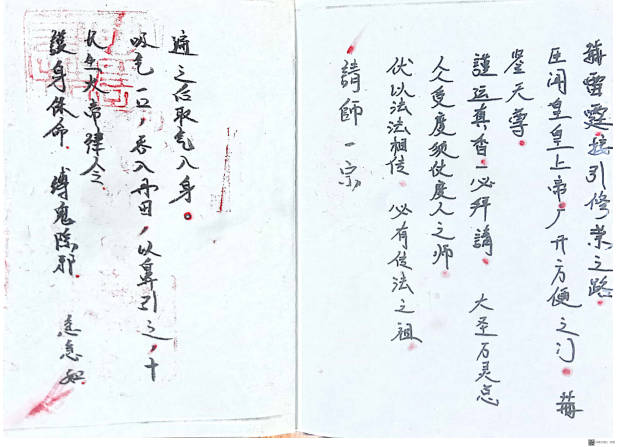 護身保命 縛鬼除邪 急急如
律令
吸气一口,吞入丹田,以鼻引之,十
遍之后取气入身。
請師一宗
伏以法法相传 必有传法之祖
人人受度须仗度人之师
謹运真香一必拜請 大圣万灵总
鉴天尊
臣聞皇皇上帝广开方便之门
雷霆接引修業之路